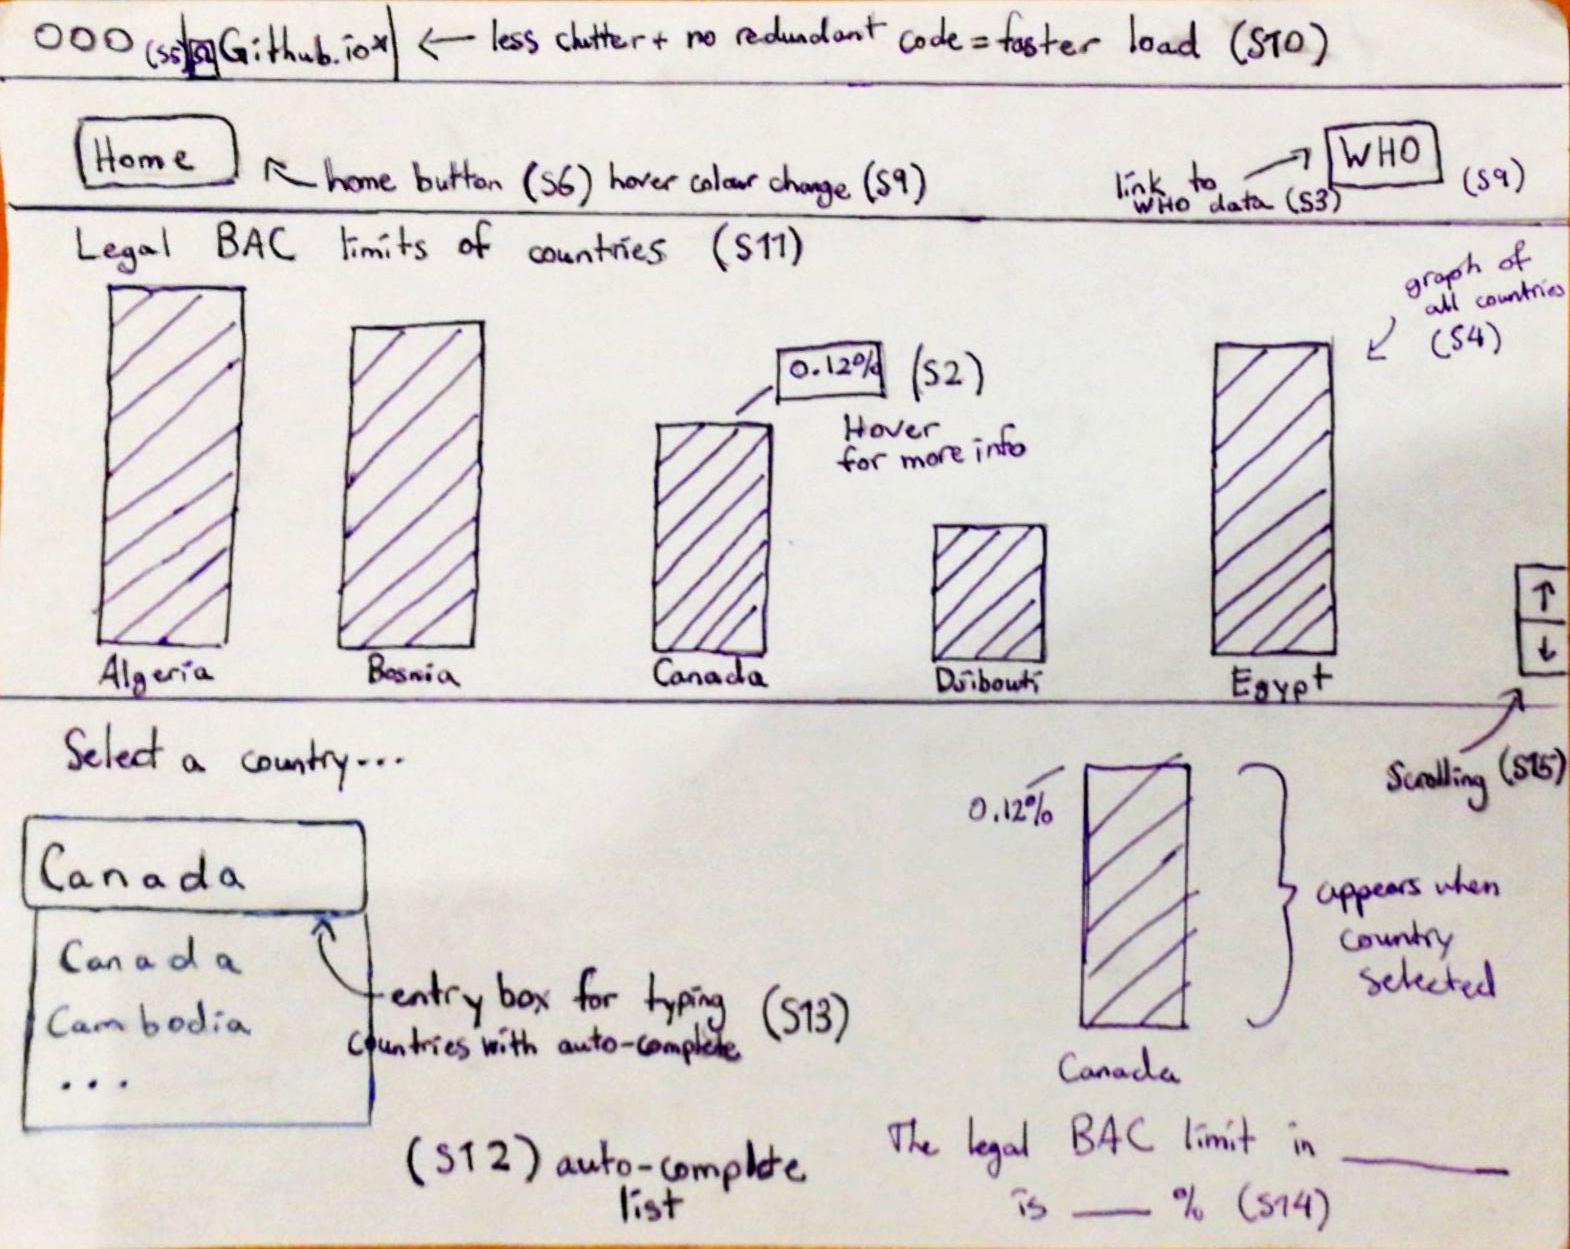 (S5) Github.io x ← less clutter + no redundant code = faster load (S10)
Home
home button (S6) hover colour change (S9)
link to
WHO data (S3)
WHO
(S9)
Legal BAC limits of countries (S11)
graph of
all countries
(S4)
0.12% (S2)
Hover
for more info
↑
↓
Algeria Bosnia Canada Djibouti Egypt
Select a country...
Scrolling (S15)
0.12%
Canada
Canada
Cambodia
...
entry box for typing (S13)
countries with auto-complete
appears when
country
selected
Canada
(S12) auto-complete
list
The legal BAC limit in ______
is ___ % (S14)